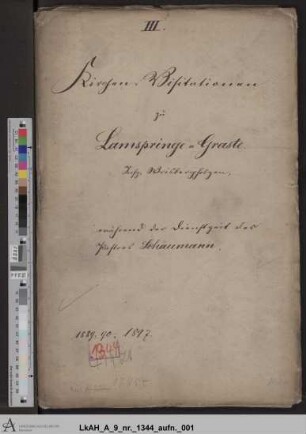 III.
Kirchen-Visitationen
zu
Lamspringe u. Graste
während der Dienstzeit des
Pastors Schaumann.
1889. 90. 1897.
1344
LkAH_A_9_nr._1344_aufn._001